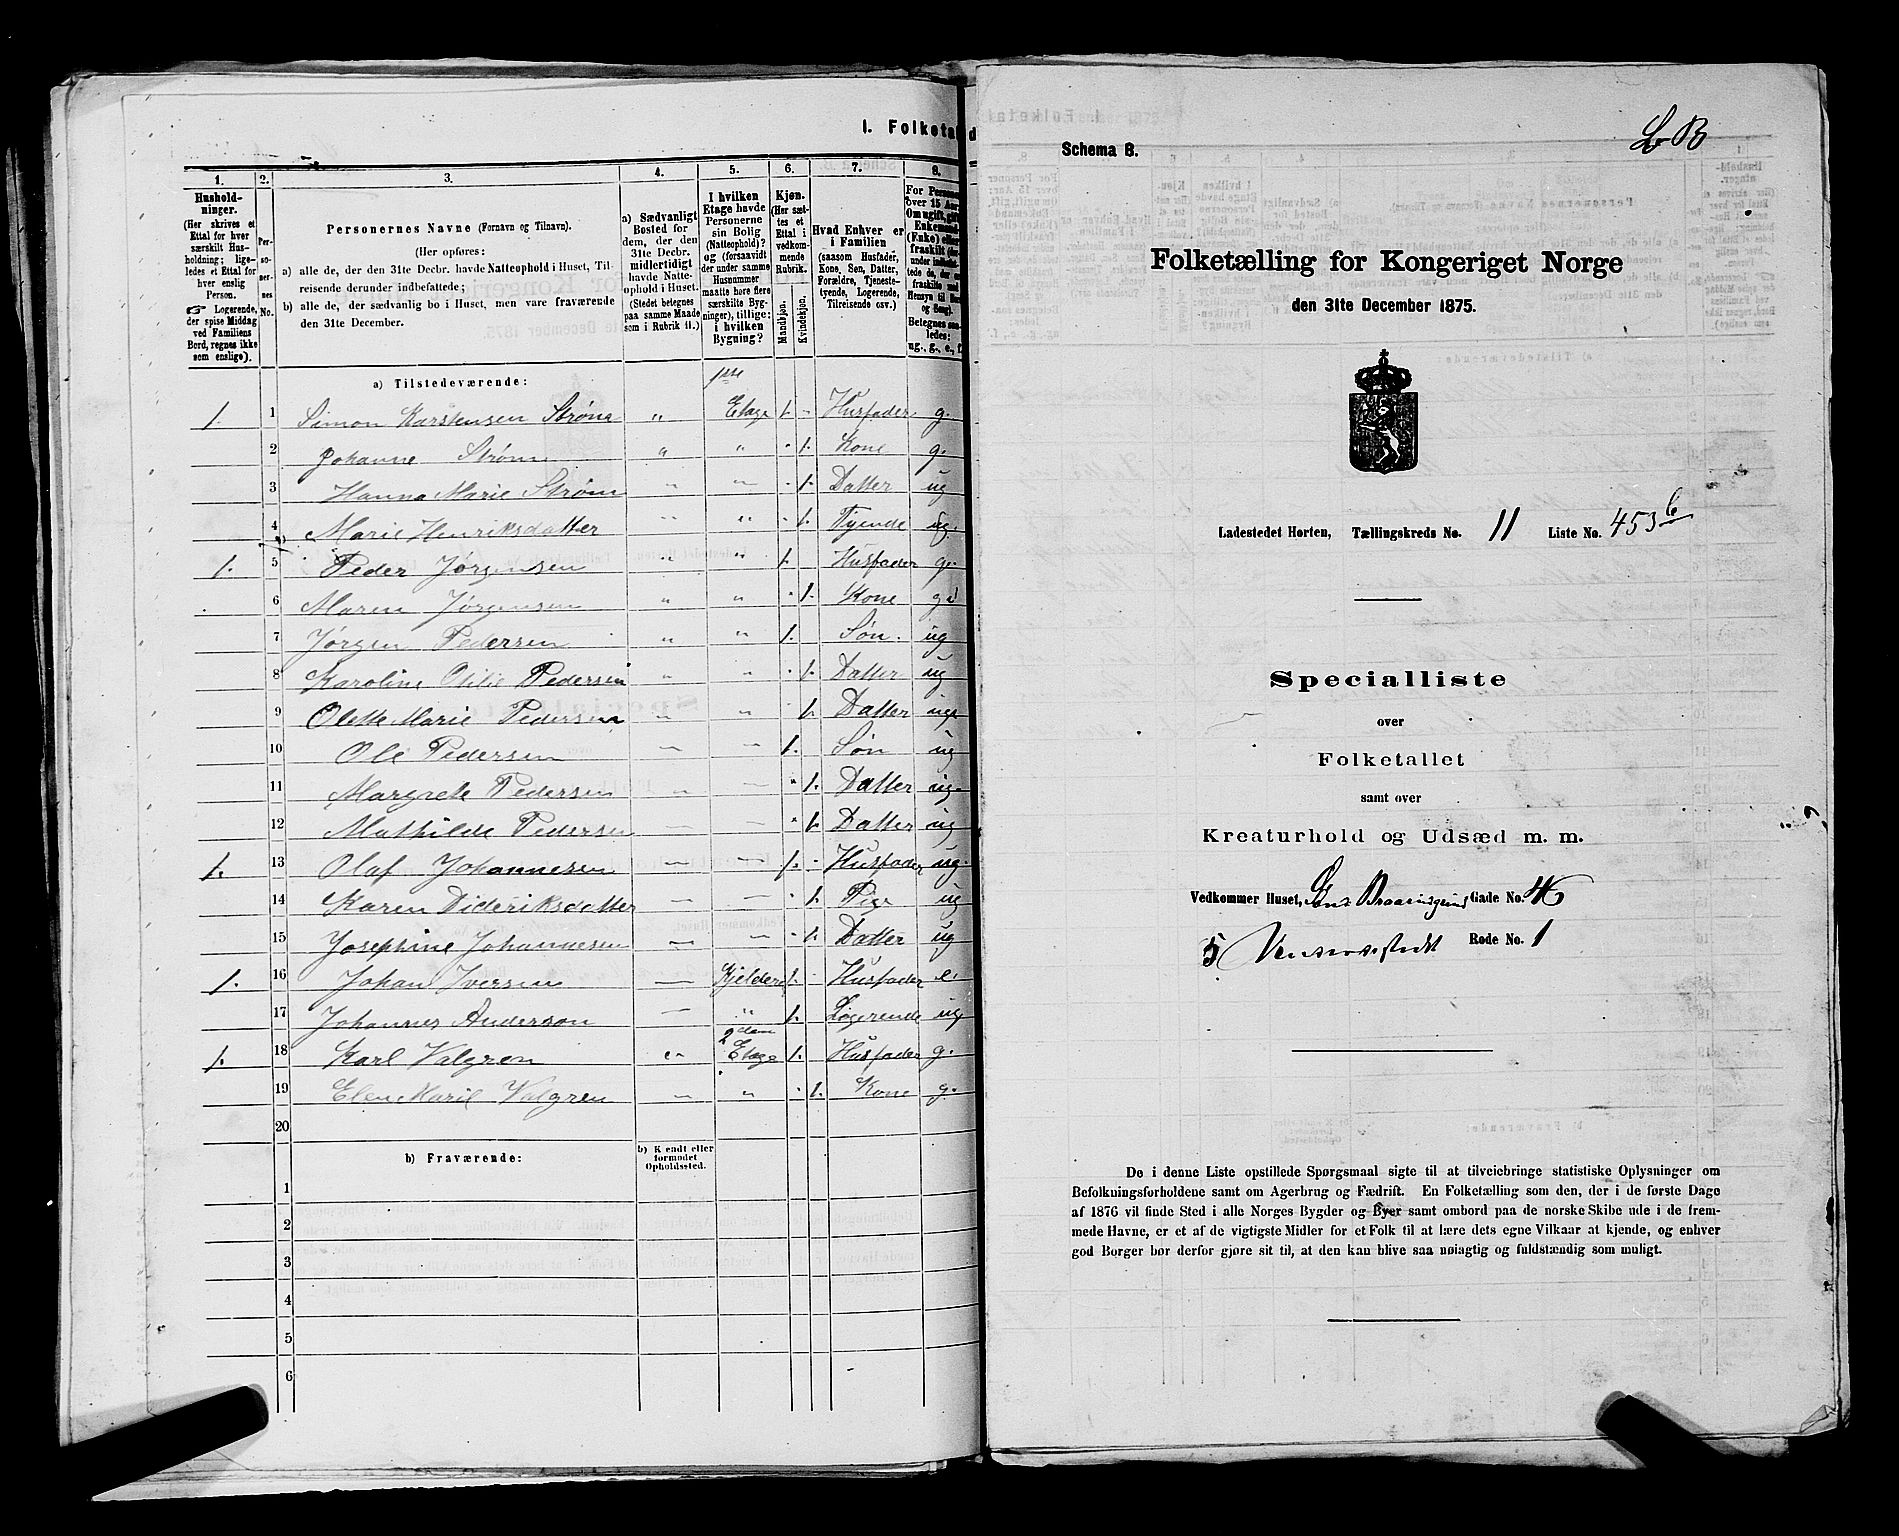 I. Folketal
1. 2. 3. 4. 5. 6. 7. 8.
Hushold-
ninger.
(Her skrives et
Ettal for hver
særskilt Hus-
holdning; lige-
ledes et Ettal for
hver enslig
Person.
☞ Logerende,
der spise Middag
ved Familiens
Bord, regnes ikke
som enslige).
Per-
so-
ner-
nes
No.
Personernes Navne (Fornavn og Tilnavn).
(Her opføres:
a) alle de, der den 31te Decbr. havde Natteophold i Huset, Til-
reisende derunder indbefattede;
b) alle de, der sædvanlig bo i Huset, men vare fraværende
den 31te December.
a) Sædvanligt
Bosted for
dem, der den
31te Decbr.
midlertidigt
havde Natte-
ophold i Huset.
(Stedet betegnes
paa samme Maade
som i Rubrik 11.)
I hvilken
Etage havde
Personerne
sin Bolig
(Natteophold)?
og (forsaavidt
der under samme
Husnummer
maatte høre flere
særskilte Byg-
ninger), tillige:
i hvilken
Bygning?
Kjøn.
(Her sæt-
tes et
Ettal i
vedkom-
mende
Rubrik.
Mandkjøn.
Kvindekjøn.
Hvad Enhver er
i Familien
(saasom Husfader,
Kone, Søn, Datter,
Forældre, Tjeneste-
tyende, Logerende,
Tilreisende osv.)
For Person
over 15 Aar
Om ugift, gift
Enkemand
(Enke) eller
fraskilt
Betegnes saa-
ledes:
ug., g., e., f.
a) Tilstedeværende: 1ste
1. 1 Simon Karstensen Strøm " Etage 1. - Husfader g.
2 Johanne Strøm " " - 1. Kone g.
3 Hanna Marie Strøm " " - 1. Datter ug
4 Marie Henriksdatter " " - 1. Tyende ug.
1. 5 Peder Jørgensen " " 1. Husfader g.
6 Maren Jørgensen " " - 1. Kone g
7 Jørgen Pedersen " " 1. Søn. ug
8 Karoline Otilie Pedersen " " - 1. Datter ug
9 Olette Marie Pedersen " " 1. Datter ug
10 Ole Pedersen " " 1. Søn ug
11 Margrete Pedersen " — " 1. Datter ug.
12 Mathilde Pedersen — — " 1. Datter ug
1. 13 Olaf Johannesen — — 1. - Husfader ug.
14 Karen Dideriksdatter — — - 1. Pige ug
15 Josephine Johannesen — " - 1. Datter ug
1. 16 Johan Iversen — Kjelder 1. - Husfader e.
17 Johannes Anderson — " 1. Logerende ug
2den
1. 18 Karl Valgren " Etage 1. Husfader g.
19 Elen Marie Valgren " " - 1. Kone g.
20
b) Fraværende:
b) Kjendt eller
formodet
Opholdssted.
1
2
3
4
5
6
Schema B.
Folketælling for Kongeriget Norge
den 31te December 1875.
Ladestedet Horten, Tællingskreds No. 11 Liste No. 453 b
Specialliste
over
Folketallet
samt over
Kreaturhold og Udsæd m. m.
Vedkommer Huset, Gade No. 46
5 Rode No. 1
De i denne Liste opstillede Spørgsmaal sigte til at tilveiebringe statistiske Oplysninger om
Befolkningsforholdene samt om Agerbrug og Fædrift. En Folketælling som den, der i de første Dage
af 1876 vil finde Sted i alle Norges Bygder og Byer samt ombord paa de norske Skibe ude i de frem-
mede Havne, er et af de vigtigste Midler for et Folk til at lære dets egne Vilkaar at kjende, og enhver
god Borger bør derfor gjøre sit til, at den kan blive saa nøiagtig og fuldstændig som muligt.